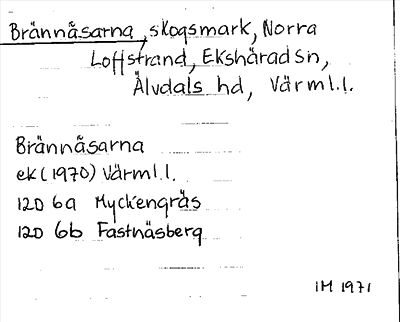 Brännåsarna, skogsmark, Norra
Loffstrand, Ekshärad sn,
Älvdals hd, Värml.l.
Brännåsarna
ek (1970) Värml.l.
12D 6a Myckengräs
12D 6b Fastnäsberg
IM 1971